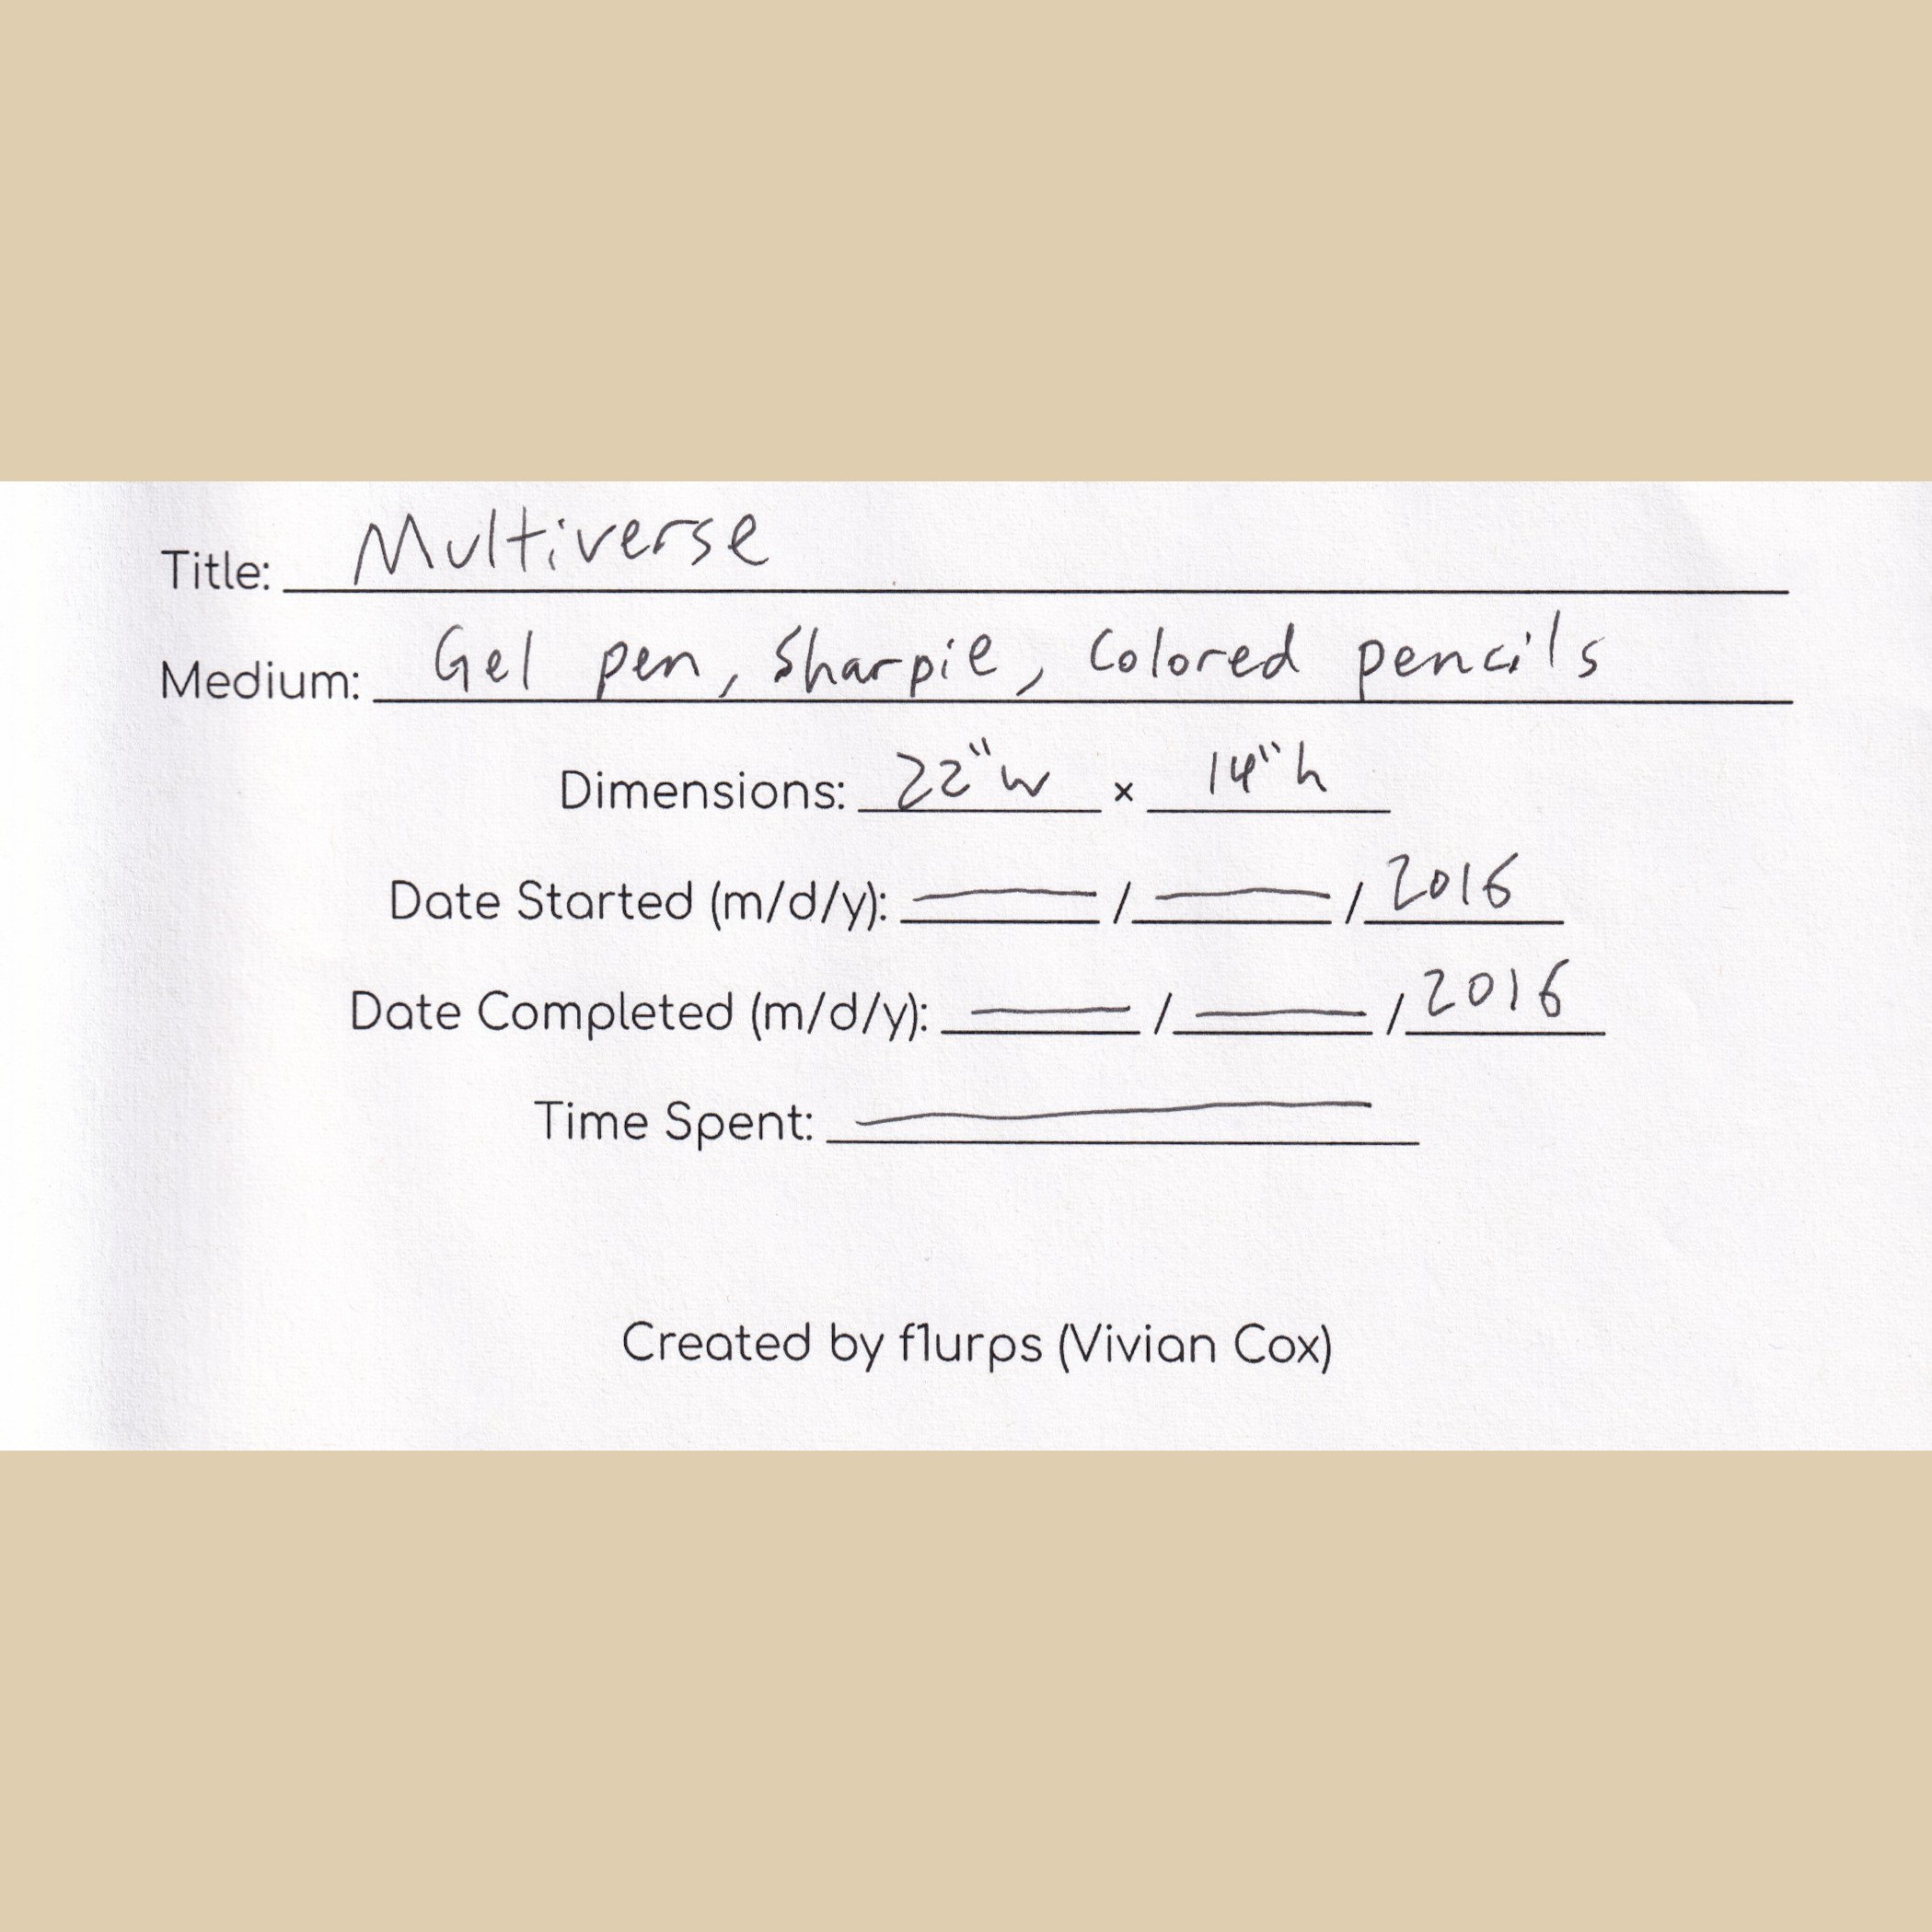 Title: Multiverse
Medium: Gel pen, Sharpie, Colored pencils
Dimensions: 22"w x 14"h
Date Started (m/d/y): — / — / 2016
Date Completed (m/d/y): — / — / 2016
Time Spent: —
Created by f1urps (Vivian Cox)